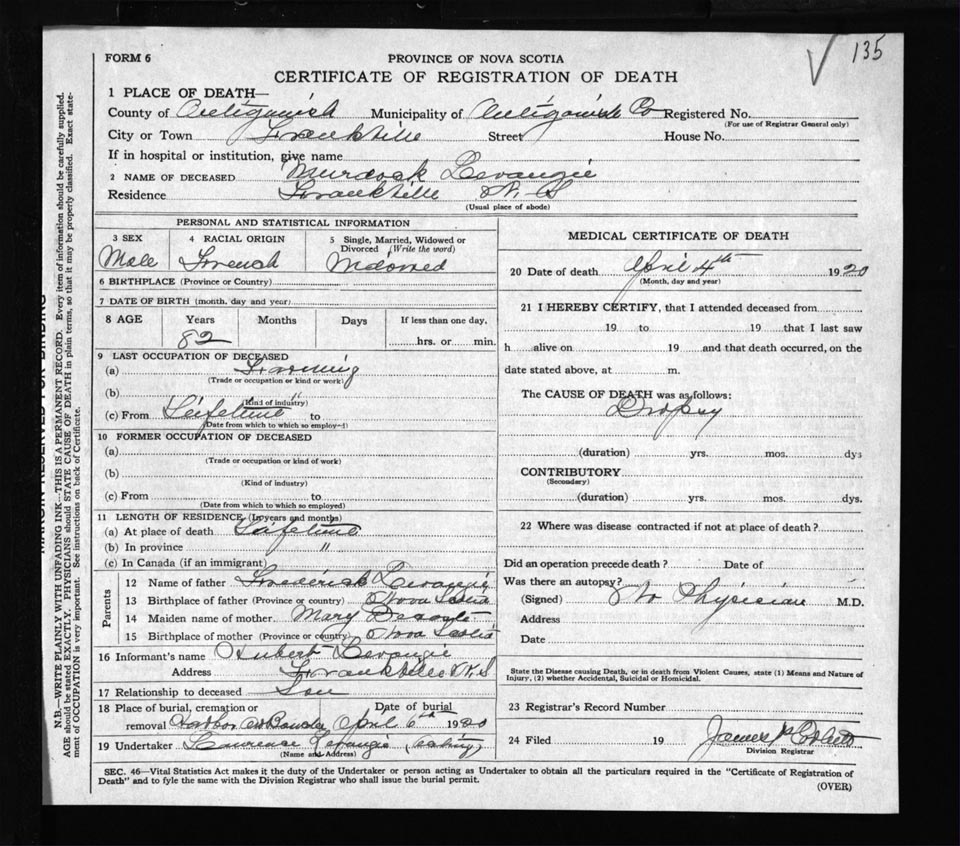 135
FORM 6
PROVINCE OF NOVA SCOTIA
CERTIFICATE OF REGISTRATION OF DEATH
1 PLACE OF DEATH—
County of Antigonish Municipality of Antigonish Co Registered No.
(For use of Registrar General only)
City or Town Frankville Street House No.
If in hospital or institution, give name
2 NAME OF DECEASED Murdock Levangie
Residence Frankville N.S
(Usual place of abode)
PERSONAL AND STATISTICAL INFORMATION
3 SEX 4 RACIAL ORIGIN 5 Single, Married, Widowed or Divorced (Write the word)
Male French Widowed
6 BIRTHPLACE (Province or Country)
7 DATE OF BIRTH (month, day and year)
8 AGE Years Months Days If less than one day,
82 hrs. or min.
9 LAST OCCUPATION OF DECEASED
(a) Farming
(Trade or occupation or kind or work)
(b) "
(Kind of industry)
(c) From Lifetime to
(Date from which to which so employed)
10 FORMER OCCUPATION OF DECEASED
(a)
(Trade or occupation or kind of work)
(b)
(Kind of industry)
(c) From to
(Date from which to which so employed)
11 LENGTH OF RESIDENCE (In years and months)
(a) At place of death Lifetime
(b) In province "
(c) In Canada (if an immigrant)
Parents
12 Name of father Frederick Levangie
13 Birthplace of father (Province or country) Nova Scotia
14 Maiden name of mother Mary
15 Birthplace of mother (Province or country) Nova Scotia
16 Informant's name Hubert Levangie
Address Frankville N.S
17 Relationship to deceased Son
18 Place of burial, cremation or removal Harbor Au Bouche Date of burial April 6th 1920
19 Undertaker Laurence Levangie (Acting)
(Name and Address)
MEDICAL CERTIFICATE OF DEATH
20 Date of death April 4th 1920
(Month, day and year)
21 I HEREBY CERTIFY, that I attended deceased from
19 to 19 that I last saw
h alive on 19 and that death occurred, on the
date stated above, at m.
The CAUSE OF DEATH was as follows:
Dropsy
(duration) yrs. mos. dys
CONTRIBUTORY
(Secondary)
(duration) yrs. mos. dys.
22 Where was disease contracted if not at place of death?
Did an operation precede death? Date of
Was there an autopsy?
(Signed) No Physician M.D.
Address
Date
State the Disease causing Death, or in death from Violent Causes, state (1) Means and Nature of
Injury, (2) whether Accidental, Suicidal or Homicidal.
23 Registrar's Record Number
24 Filed 19 James
Division Registrar
SEC. 46—Vital Statistics Act makes it the duty of the Undertaker or person acting as Undertaker to obtain all the particulars required in the "Certificate of Registration of
Death" and to fyle the same with the Division Registrar who shall issue the burial permit.
(OVER)
MARGIN RESERVED FOR BINDING
N.B.—WRITE PLAINLY WITH UNFADING INK—THIS IS A PERMANENT RECORD. Every item of information should be carefully supplied.
AGE should be stated EXACTLY. PHYSICIANS should STATE CAUSE OF DEATH in plain terms, so that it may be properly classified. Exact statement of OCCUPATION is very important. See instructions on back of Certificate.